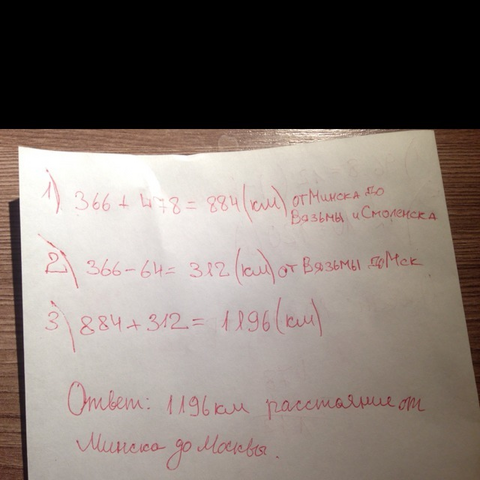 1) 366 + 478 = 884 (км) от Минска до
Вязьмы и Смоленска
2) 366 - 64 = 312 (км) от Вязьмы до Мск
3) 884 + 312 = 1196 (км)
Ответ: 1196 км расстояние от
Минска до Москвы.